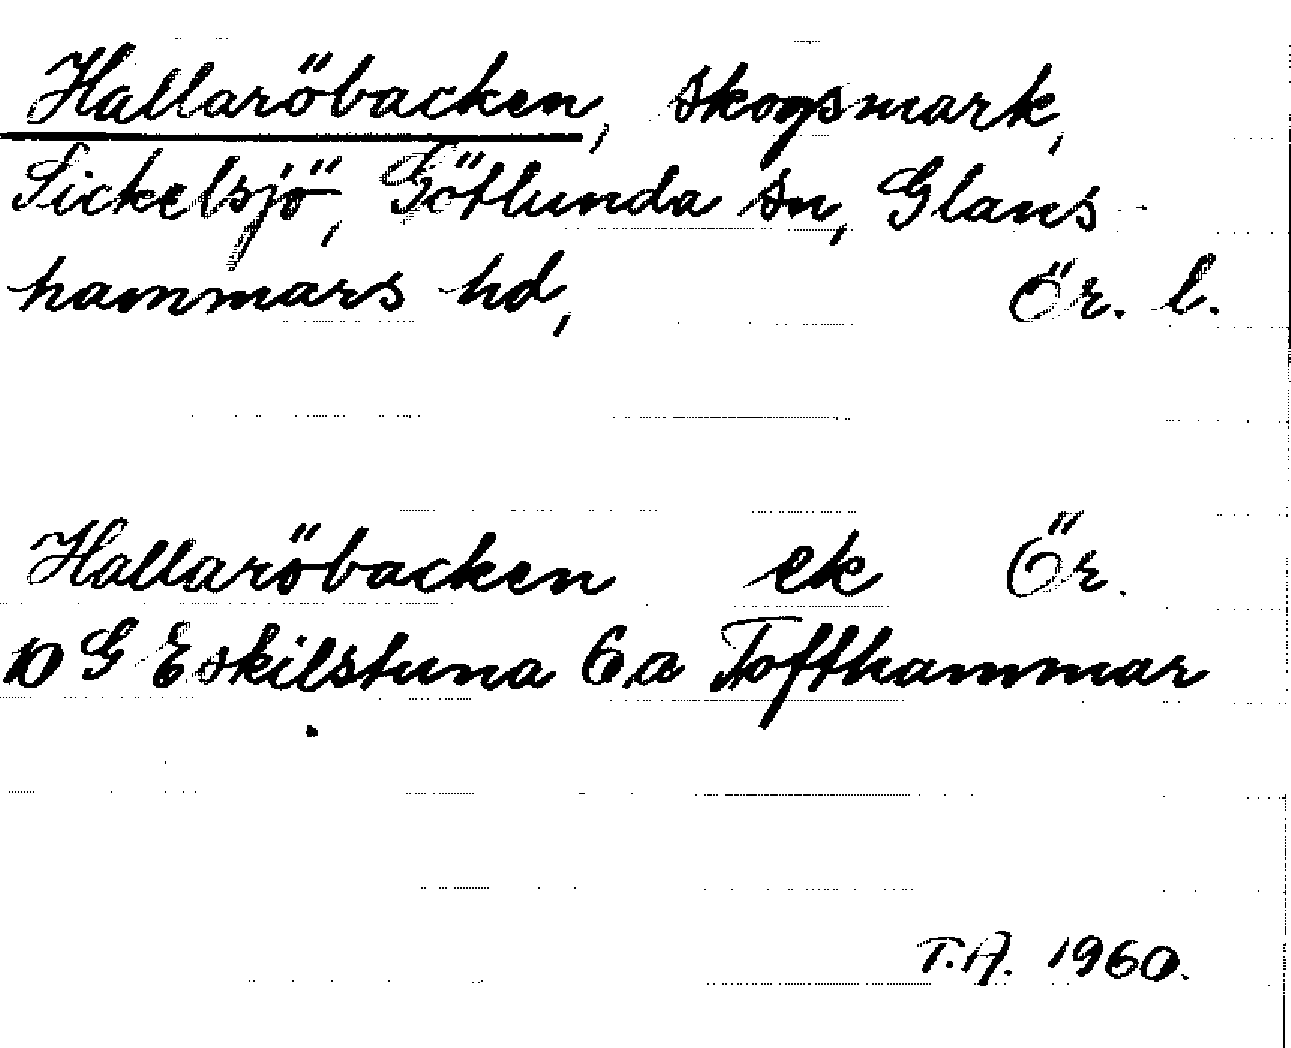 Hallaröbacken, skogsmark,
Sickelsjö, Götlunda sn, Glans-
hammars hd, Ör. l.
Hallaröbacken ek Ör.
10 G Eskilstuna 6a Tofthammar
T.A. 1960.